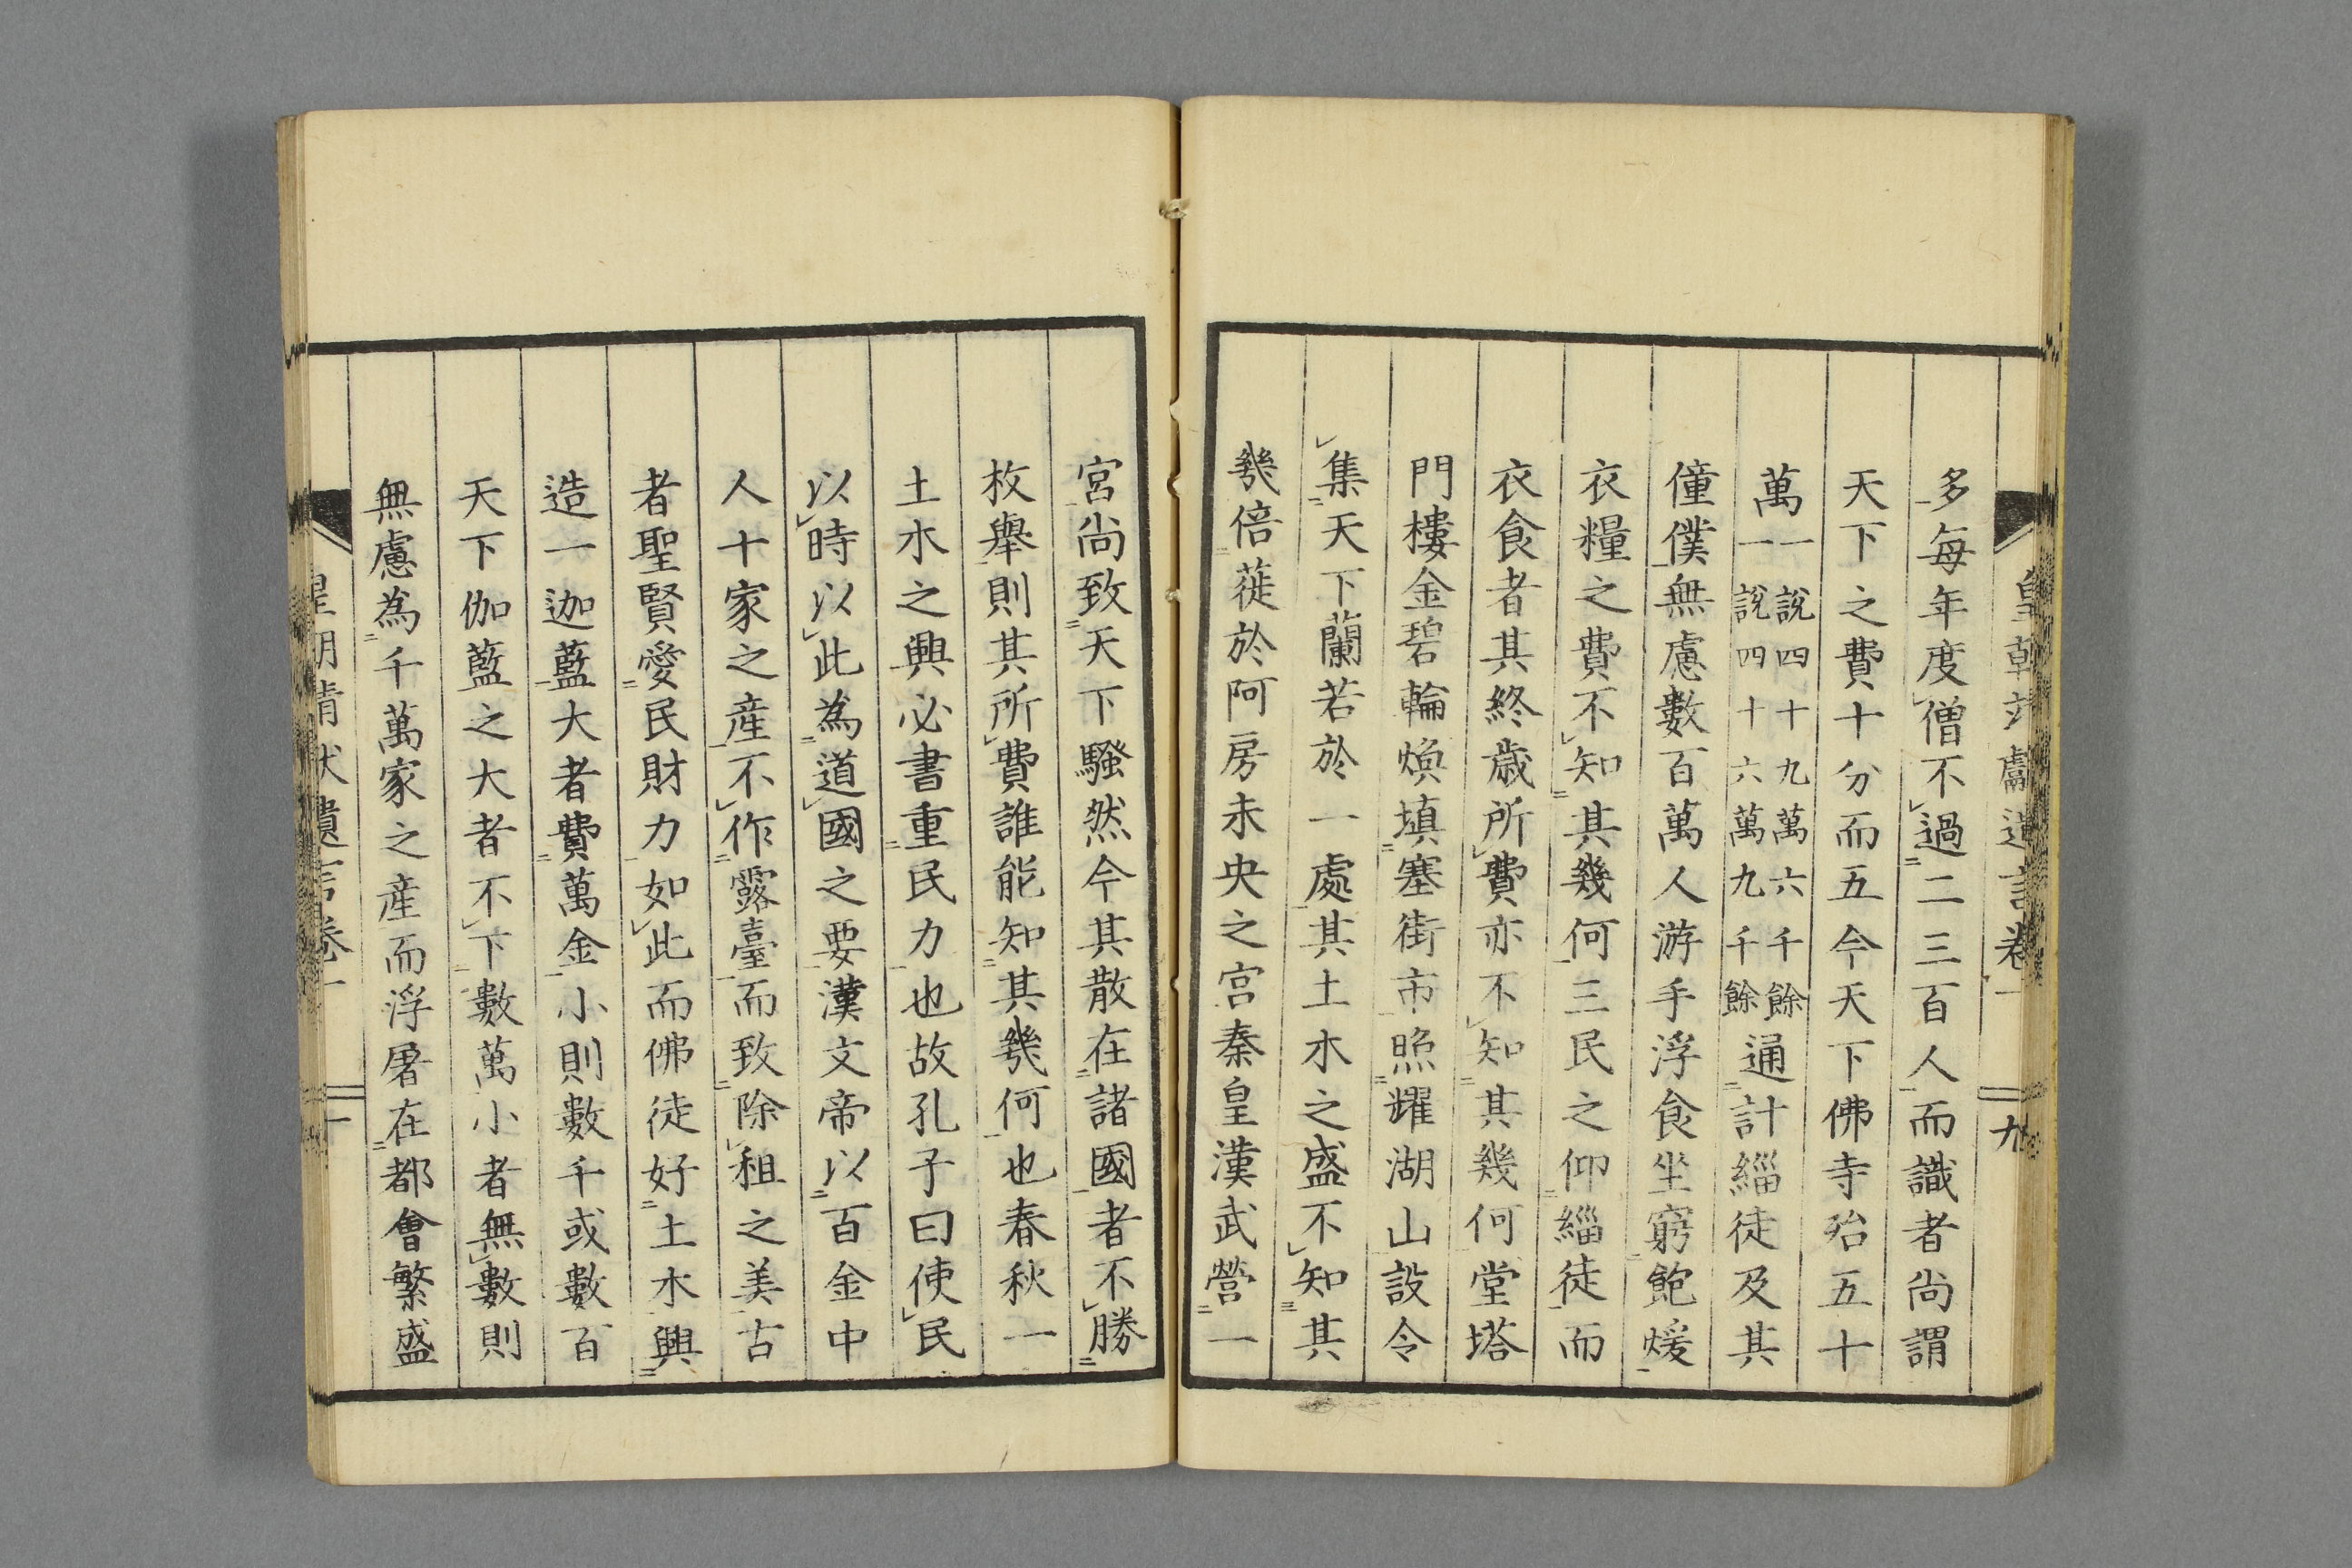 多毎年度僧不過二三百人而識者尚謂
天下之費十分而五今天下佛寺殆五十
萬一說四十九萬六千餘一說四十六萬九千餘通計緇徒及其
僮僕無慮數百萬人游手浮食坐窮飽煖
衣糧之費不知其幾何三民之仰緇徒而
衣食者其終歳所費亦不知其幾何堂塔
門樓金碧輪煥塡塞街市照耀湖山設令
集天下蘭若於一處其土木之盛不知其
幾倍蓰於阿房未央之宮秦皇漢武營一
宮尚致天下騷然今其散在諸國者不勝
枚舉則其所費誰能知其幾何也春秋一
土木之興必書重民力也故孔子曰使民
以時以此為道國之要漢文帝以百金中
人十家之産不作露臺而致除租之美古
者聖賢愛民財力如此而佛徒好土木興
造一迦藍大者費萬金小則數千或數百
天下伽藍之大者不下數萬小者無數則
無慮為千萬家之産而浮屠在都會繁盛
九